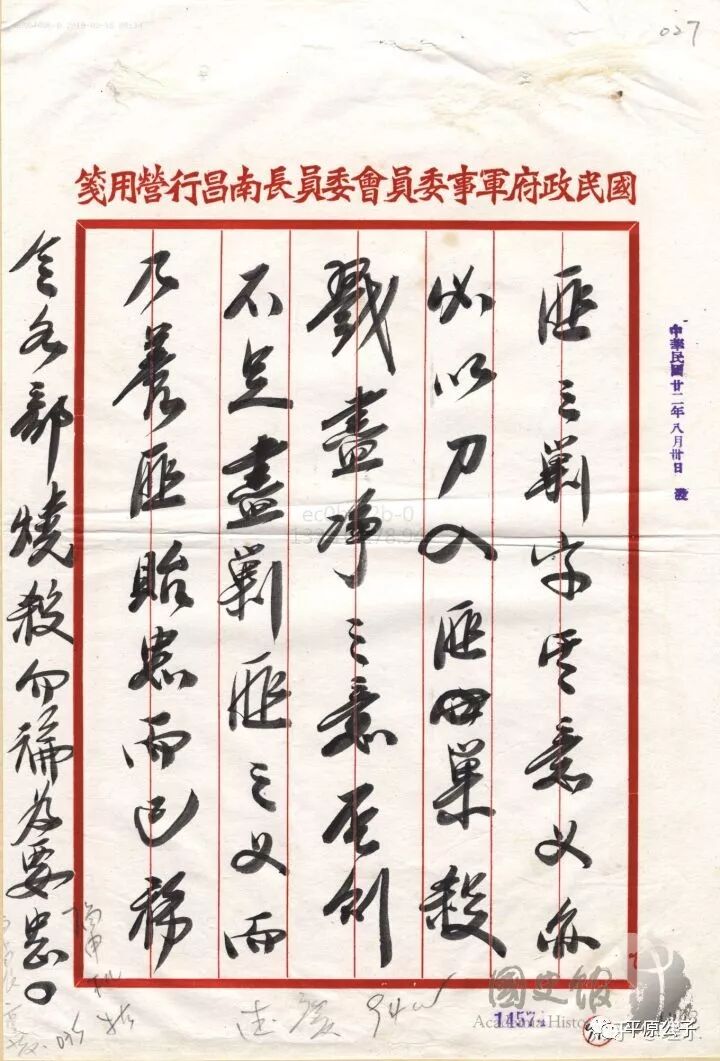 027
國民政府軍事委員會委員長南昌行營用箋
中華民國廿二年八月卅日 發
匪之剿字其意义亦
必以刀入匪巢殺
戮盡净之意否則
不足盡剿匪之义而
乃養匪貽患而已務
令各部燒殺勿論為要
國史館
Academia Histor
1457
平原公子